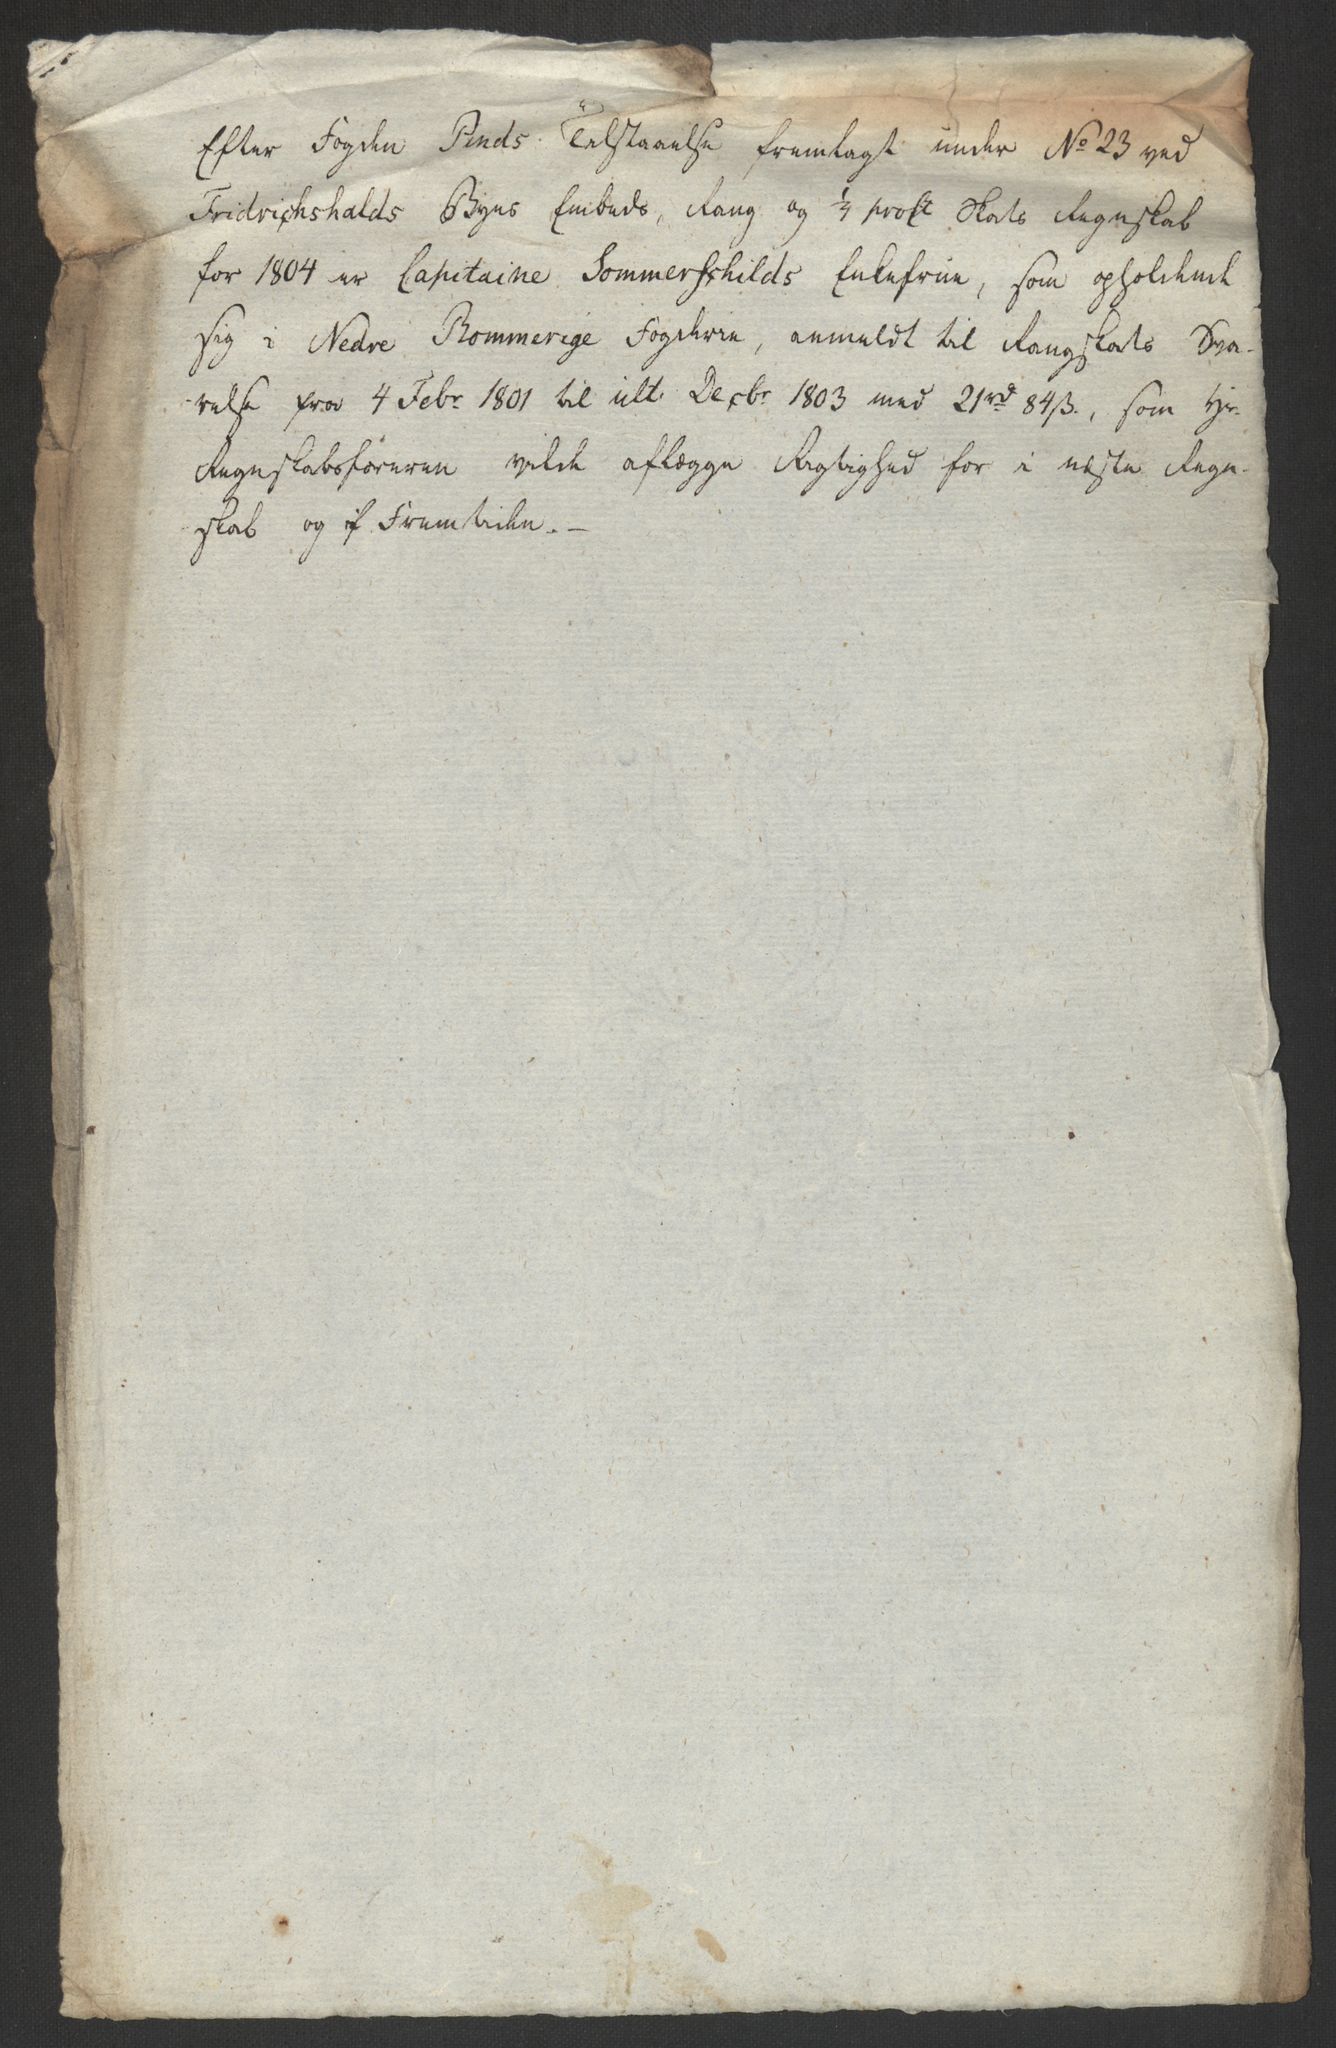 Efter Fogden Pinds Tilstaaelse fremlagt under No 23 ved
Fridrichshalds Byes Embeds, Rang og ¼ proCt Skats Regnskab
for 1804 er Capitaine Sommerschilds Enkefrue, som opholdende
sig i Nedre Rommerige Fogderie, anmeldt til Rangskats Sva-
relse fra 4 Febr 1801 til ult. Decbr 1803 med 21 rd 84 ß., som Hr
Regnskabsføreren vilde aflægge Rigtighed for i næste Regn-
skab og i Fremtiden. —